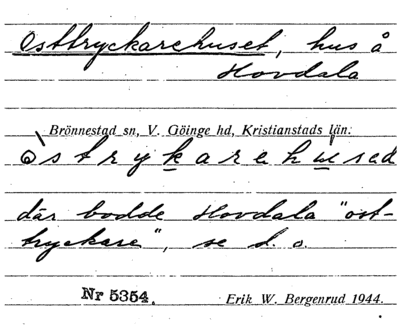 Osttryckarehuset, hus å
Hovdala
Brönnestad sn, V. Göinge hd, Kristianstads län.
òstrykarehused
där bodde Hovdala "ost-
tryckare", se d. o.
Nr 5354. Erik W. Bergenrud 1944.